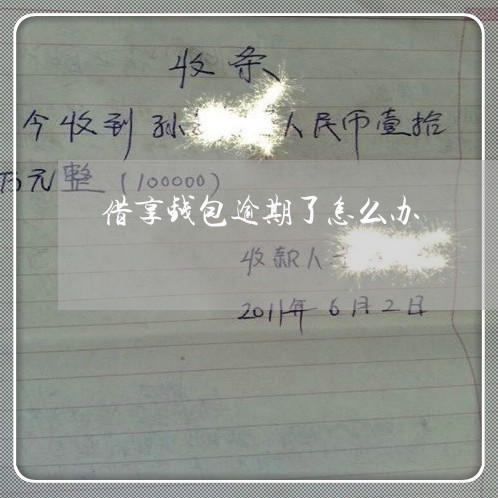 收条
今收到孙 人民币壹拾
万元整（100000）
借享钱包逾期了怎么办
收款人
2011年6月2日